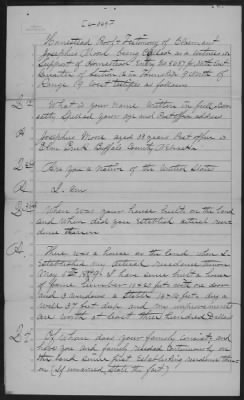 Homestead Proof - Testimony of Claimant
Josephus Moore being called as a witness in
Support of Homestead Entry No for
Quarter of Section 12 in Township 9 North of
Range 19 West testifies as follows
Ques 1st What is your name written in full and correctly
spelled your age and Post office address
A Josephus Moore aged 39 years Post office is
Elm Creek Buffalo County Nebraska
Ques 2nd Are you a native of the United States
A I am
Ques 3rd When was your house built on the land
and when did you establish actual residence
therein
A. There was a house on the land when I
established my actual residence thereon
May I have since built a house
of frame with one door
and 3 windows a stable 14 x 16 feet dug a
well feet deep and my improvements
are worth at least three hundred Dollars
Ques 4th Of whom does your family consist; and
have you and family resided continuously on
the land since first establishing residence thereon
(If unmarried, state the fact)